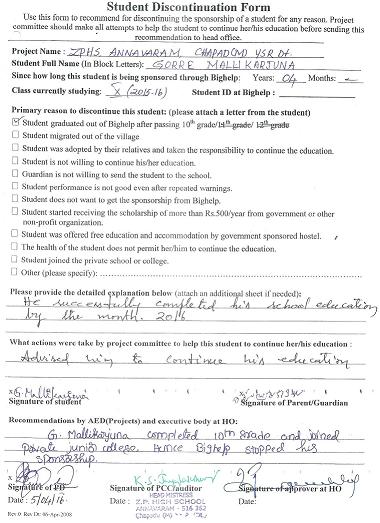 Student Discontinuation Form
Use this form to recommend for discontinuing the sponsorship of a student for any reason. Project
committee should make all attempts to help the student to continue her/his education before sending this
recommendation to head office.
Project Name : ZPHS ANNAVARAM CHAPAD(M) YSR Dt.
Student Full Name (In Block Letters): GORRE MALLIKARJUNA
Since how long this student is being sponsored through Bighelp: Years: 04 Months: -
Class currently studying: X (2015-16) Student ID at Bighelp :
Primary reason to discontinue this student: (please attach a letter from the student)
Student graduated out of Bighelp after passing 10th grade/ 11th grade/ 12th grade
Student migrated out of the village
Student was adopted by their relatives and taken the responsibility to continue the education.
Student is not willing to continue his/her education.
Guardian is not willing to send the student to the school.
Student performance is not good even after repeated warnings.
Student does not want to get the sponsorship from Bighelp.
Student started receiving the scholarship of more than Rs.500/year from government or other
non-profit organization.
Student was offered free education and accommodation by government sponsored hostel.
The health of the student does not permit her/him to continue the education.
Student joined the private school or college.
Other (please specify):
Please provide the detailed explanation below (attach an additional sheet if needed):
He successfully completed his school education
by the month. 2016
What actions were take by project committee to help this student to continue her/his education :
Advised him to continue his education
x G. Mallikarjuna x
Signature of student Signature of Parent/Guardian
Recommendations by AED(Projects) and executive body at HO:
G. Mallikarjuna completed 10th grade and joined
private junior college. Hence Bighelp stopped his
sponsorship.
Signature of PD Signature of PCC/auditor Signature of approver at HO
Date : 5/04/16 Date : HEAD MISTRESS Date:
Z.P. HIGH SCHOOL
ANNAVARAM - 516 362
Rev 0: Rev Dt: 06-Apr-2008